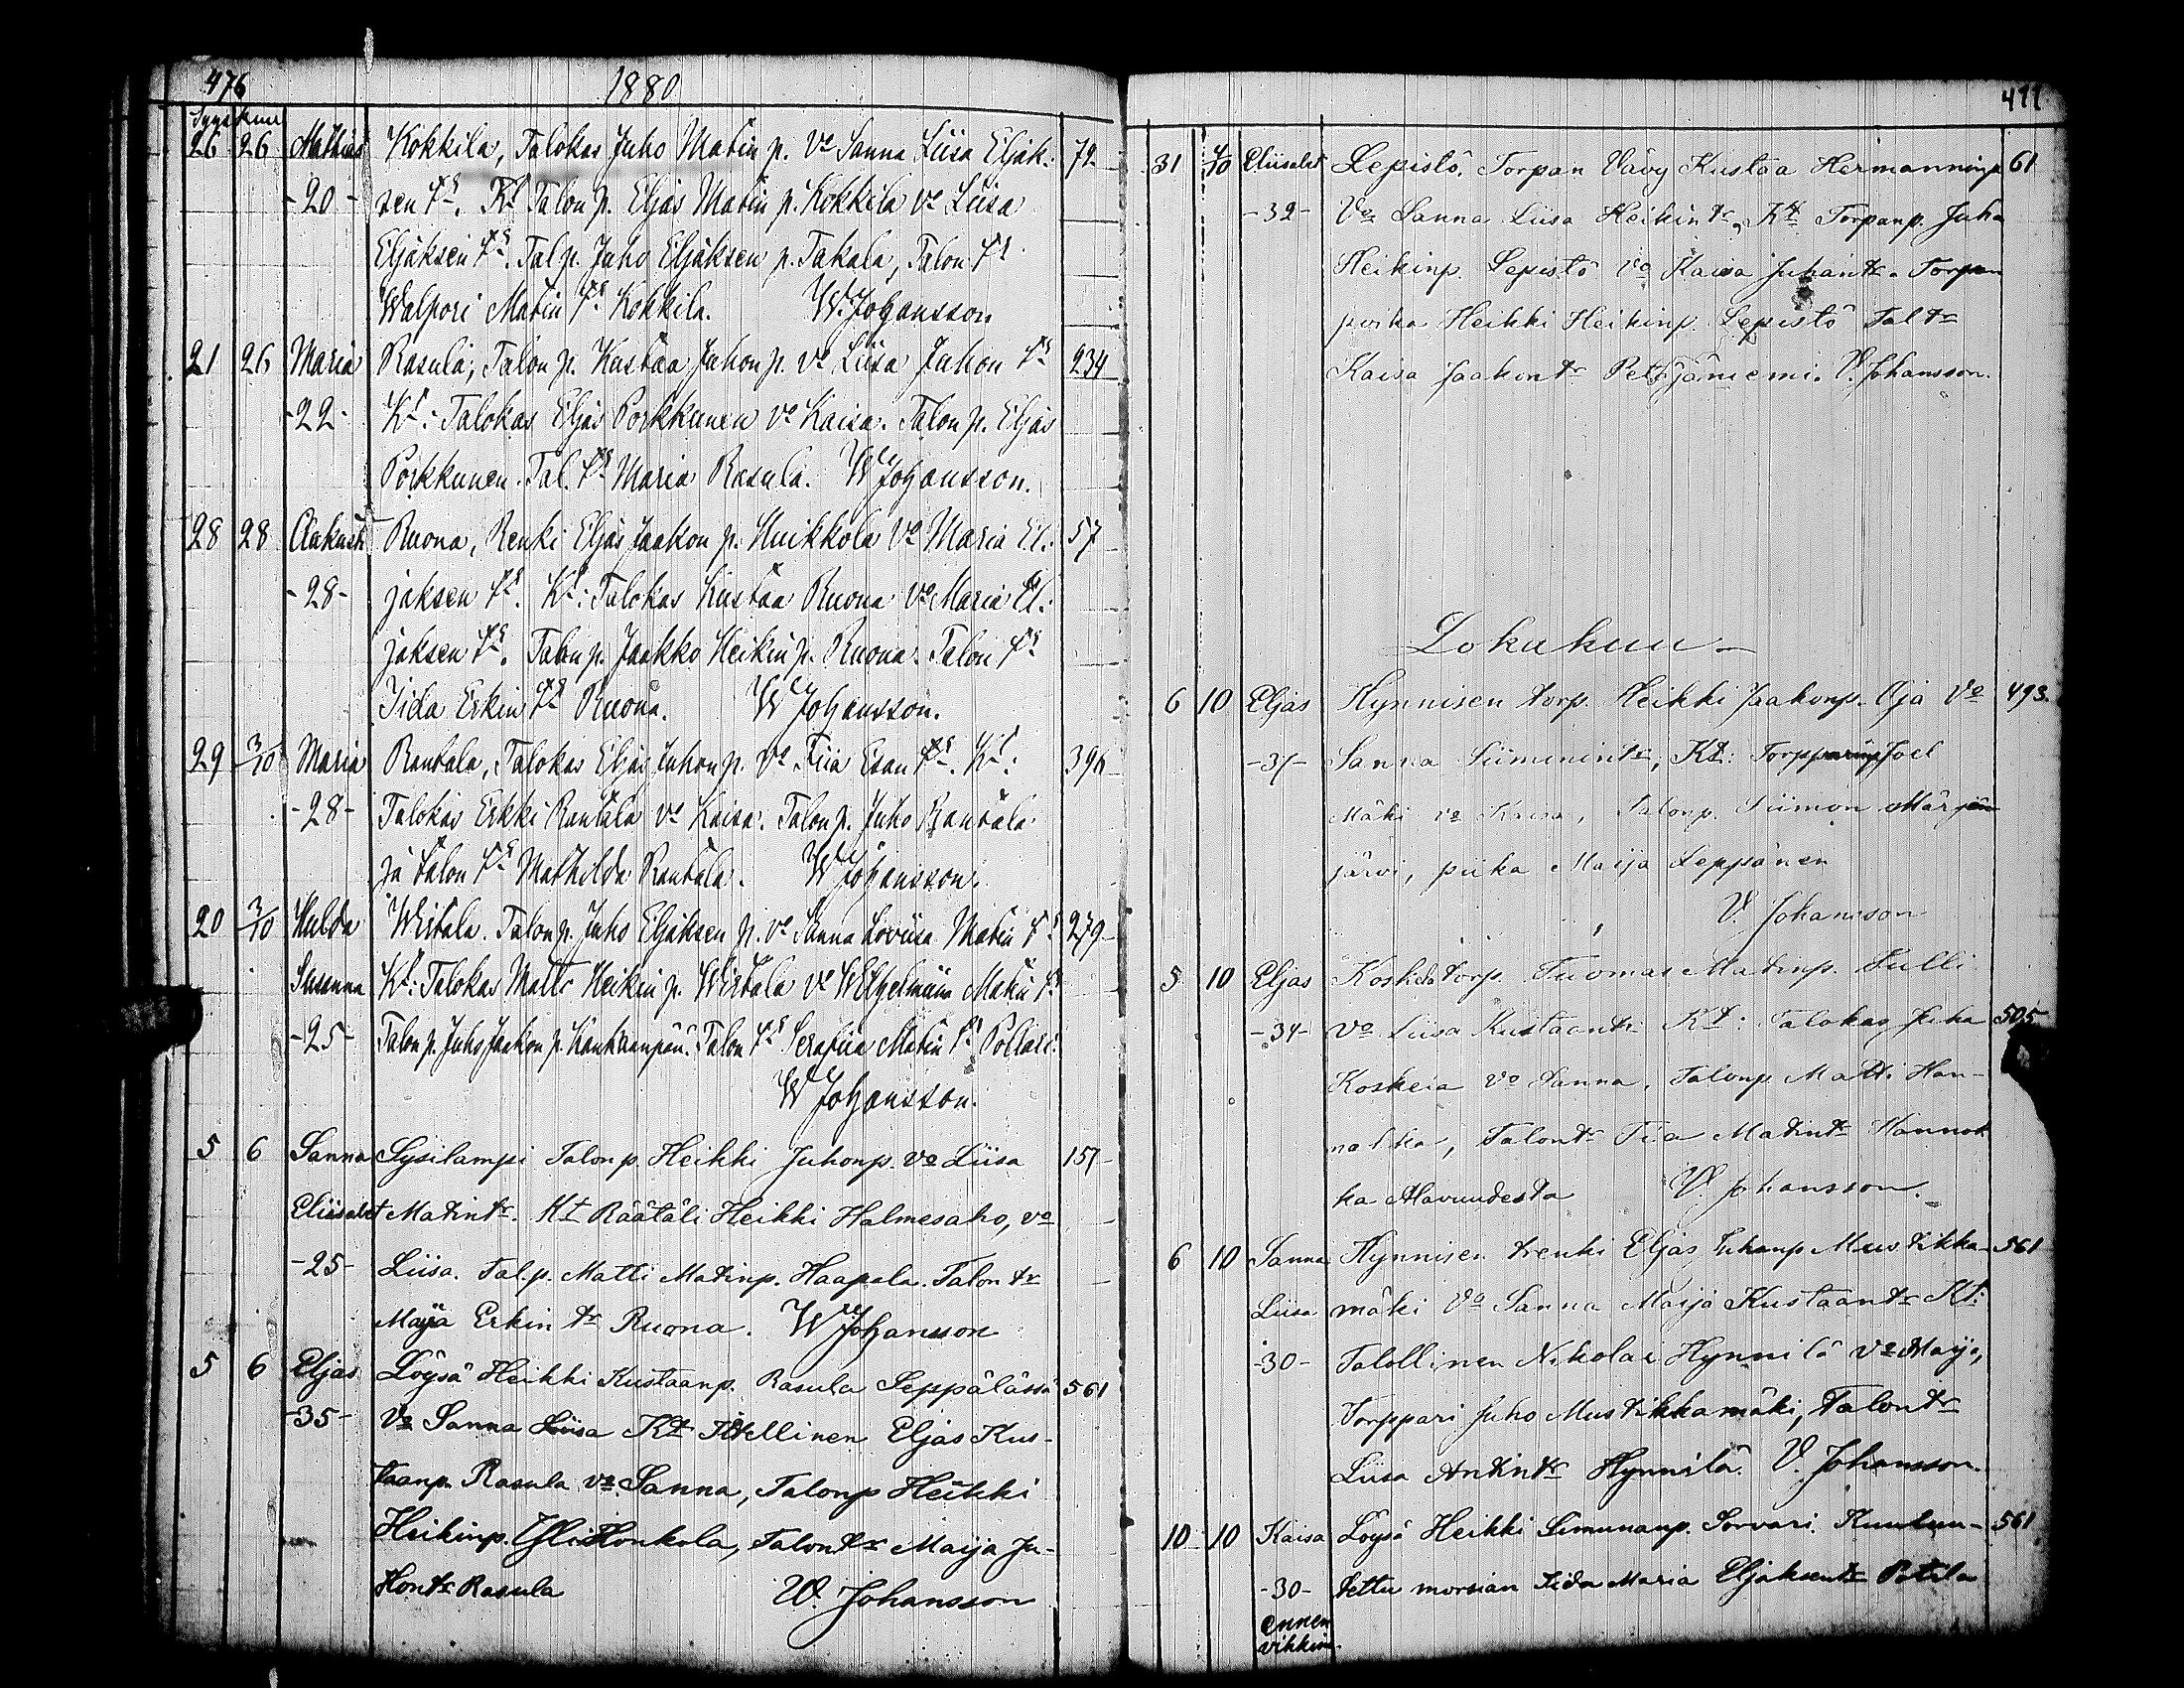 476 1880
Syyskuu
26 26 Mathias Kokkila, Talokas Juho Matin p. vo Sanna Liisa Eljäk: 72
-20- sen tr. Kt Talon p. Eljas Matin p. Kokkila vo Liisa
Eljäksen tr. Tal p. Juho Eljäksen p. Takala, Talon tr
Walpori Matin tr Kokkila. W. Johansson.
21 26 Maria Rasula, Talon p. Kustaa Juhon p. vo Liisa Juhon tr 234
-22- Kt: Talokas Eljas Porkkunen vo Kaisa. Talon p. Eljas
Porkkunen. Tal. tr Maria Rasula. W Johansson.
28 28 Aakusti Ruona, Renki Eljas Jaakon p. Huikkola vo Maria El: 57
-28- jaksen tr. Kt: Talokas Kustaa Ruona vo Maria El:
jaksen tr. Talon p. Jaakko Heikin p. Ruona. Talon tr
Iida Erkin tr Ruona. W Johansson.
29 3/10 Maria Rantala, Talokas Eljas Juhon p. vo Fiia Esan tr. Kt: 396
-28- Talokas Erkki Rantala vo Kaisa. Talon p. Juho Rantala
ja talon tr Mathilda Rantala. W Johansson.
20 3/10 Hulda Wirtala. Talon p. Juho Eljäksen p. vo Sanna Loviisa Matin tr 279
Susanna Kt: Talokas Matts Heikin p. Wirtala vo Wilhelmiina Matin tr
-25- Talon p. Juho Jaakon p. Kankaanpää. Talon tr Serafiia Matin tr Pollari.
W Johansson.
5 6 Sanna Sysilampi Talon p. Heikki Juhonp. vo Liisa 157
Eliisabet Matintr. Kt Räätäli Heikki Halmesaho, vo
-25- Liisa. Tal. p. Matti Matinp. Haapala. Talon tr
Maija Erkin tr Ruona. W Johansson
5 6 Eljas Löysä Heikki Kustaanp. Rasula Seppälässä 561
-35- vo Sanna Liisa Kt Itellinen Eljas Kus-
taanp. Rasula vo Sanna, Talonp Heikki
Heikinp. YliHonkola, Talontr Maija Ju-
hontr Rasula W. Johansson
477
31 4/10 Eliisabet Lepistö. Torpan Vävy Kustaa Hermanninp 61
-32- Vo Sanna Liisa Heikintr, Kt Torpanp. Juha
Heikinp. Lepistö vo Kaisa Juhantr. Torpan
poika Heikki Heikinp. Lepistö Tal tr
Kaisa Jaakontr Petäjäniemi. V. Johansson.
Lokakuu
6 10 Eljas Hynnisen torp. Heikki Jaakonp. Oja vo 493.
-37- Sanna Siimenintr, Kt: Torppari Joel
Mäki vo Kaisa, Talonp. Siimon Märjän
järvi, piika Maija Leppänen
V. Johansson
5 10 Eljas Koskela torp. Tuomas Matinp. Tulli
-34- vo Liisa Kustaantr. Kt: Talokas Juha 505
Koskela vo Sanna, Talonp Matti Han-
nakka, Talontr Tia Matintr Hannak
ka Alavuudesta V. Johansson.
6 10 Sanna Hynnisen trenki Eljas Juhanp Mustikka- 561
Liisa mäki vo Sanna Maija Kustaantr Kt:
-30- Talollinen Nikolai Hynnilä vo Maija,
Torppari Juho Mustikkamäki, Talontr
Liisa Antintr Hynnilä. V. Johansson.
10 10 Kaisa Löysä Heikki Simunanp. Sorvari. Kuulu- 561
-30- tettu morsian Iida Maria Eljaksentr Potila
ennen
vihkim.